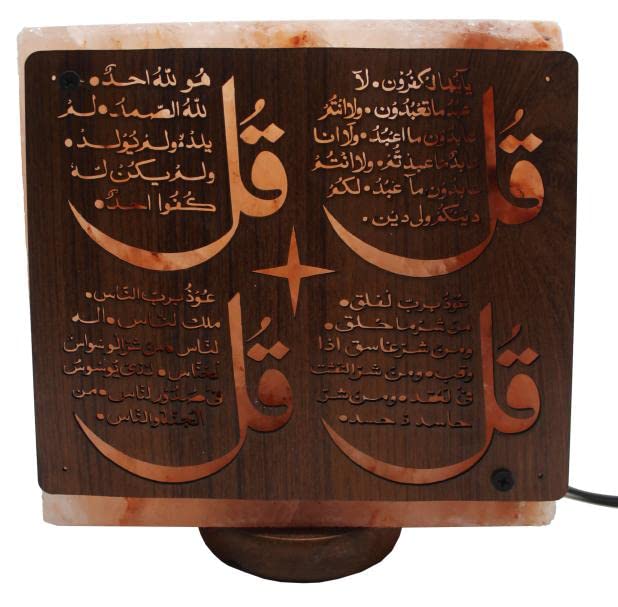 قُل
يأيها لكفرون • لا
عبد ما تعبدون • ولا انتم
عابدون ما اعبد • ولا انا
عابد ما عبدتم • ولا انتم
عابدون ما عبد • لكم
دينكم ولى دين •
قُل
هو للّه احد •
للّه الصّمد • لم
يلد • ولم يولد •
ولم يكن له
كفوا احد •
قُل
عوذ برب لفلق •
من شر ما خلق •
ومن شر غاسق اذا
وقب • ومن شر النفثت
فى لعقد • ومن شر
حاسد ذ حسد •
قُل
عوذ برب النّاس •
ملك لنّاس • اله
لنّاس • من شر الوسواس
لخنّاس • لذى يوسوس
فى صدور لنّاس • من
الجنة والنّاس •